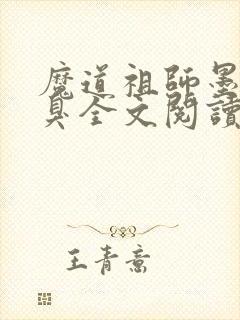 魔道祖師墨
臭全文閱讀
王青意